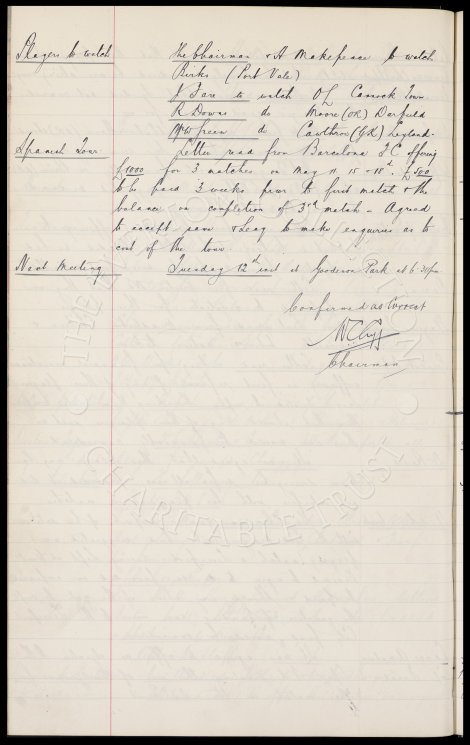 Players to watch The Chairman & H Makepeace to watch
Birks (Port Vale)
J Fare to watch OL Cannock Town.
R Downs do Moore (OR) Darfield
W Green do Cawthrow (GK) Leyland.
Spanish Tour Letter read from Barcelona F.C. offering
£1000 for 3 matches on May 11 15 & 18th. £500
to be paid 3 weeks prior to first match & the
balance on completion of 3rd match - Agreed
to accept same & Secy to make enquiries as to
cost of the tour.
Next Meeting Tuesday 12th inst at Goodison Park at 6.30pm
Confirmed as Correct
W C Cuff
Chairman
THE
CHARITABLE TRUST